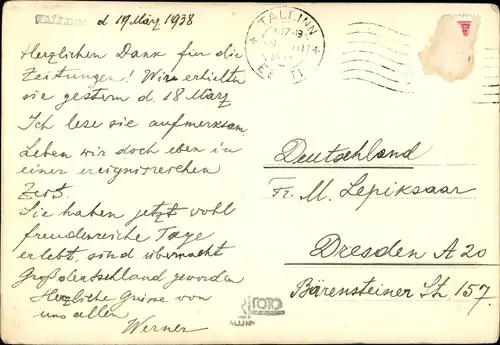 TALLINN d 19 März 1938
Herzlichen Dank für die
Zeitungen! Wir erhielten
sie gestern d. 18 März
Ich lese sie aufmerksam
Leben wir doch eben in
einer ereignisreichen
Zeit.
Sie haben jetzt wohl
freudenreiche Tage
erlebt, sind übernacht
Großdeutschland geworden
Herzliche Grüsse von
uns allen
Werner
TALLINN
EESTI
Deutschland
Fr. M. Lepiksaar
Dresden A 20
Bärensteiner St 157.
FOTO
TALLINN